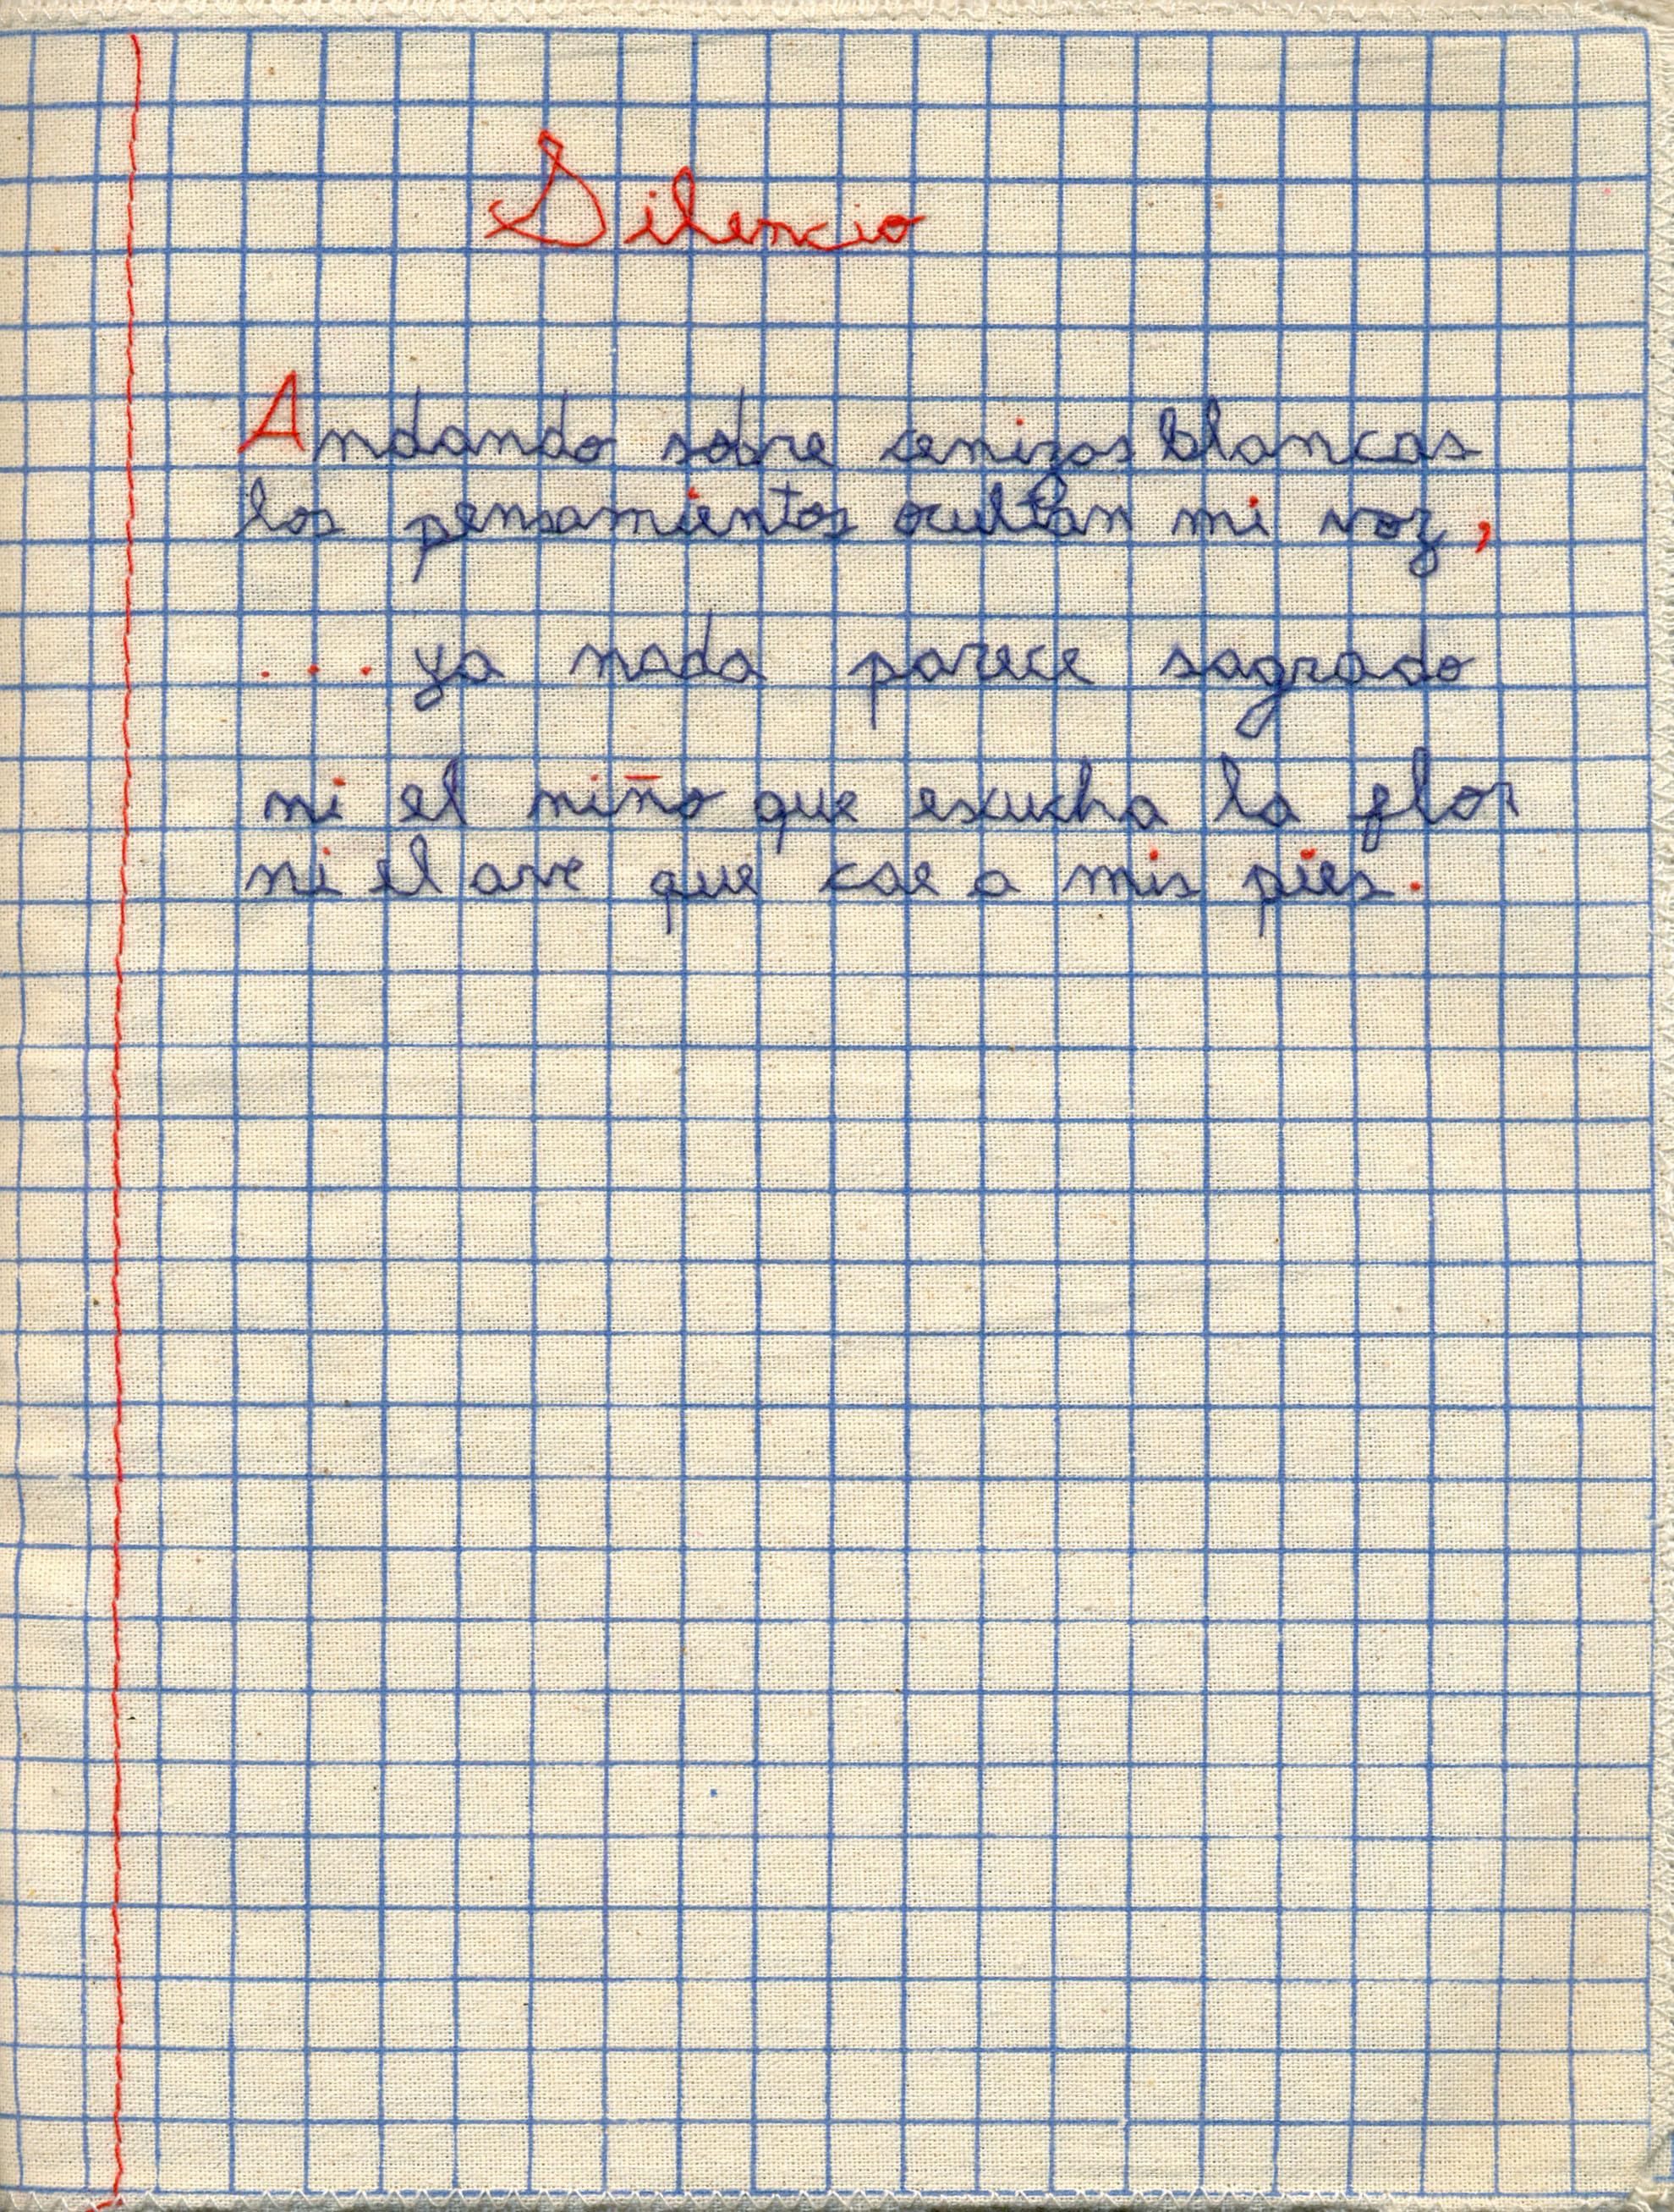 Silencio
Andando sobre cenizas blancas
los pensamientos ocultan mi voz,
... ya nada parece sagrado
ni el niño que escucha la flor
ni el ave que cae a mis pies.